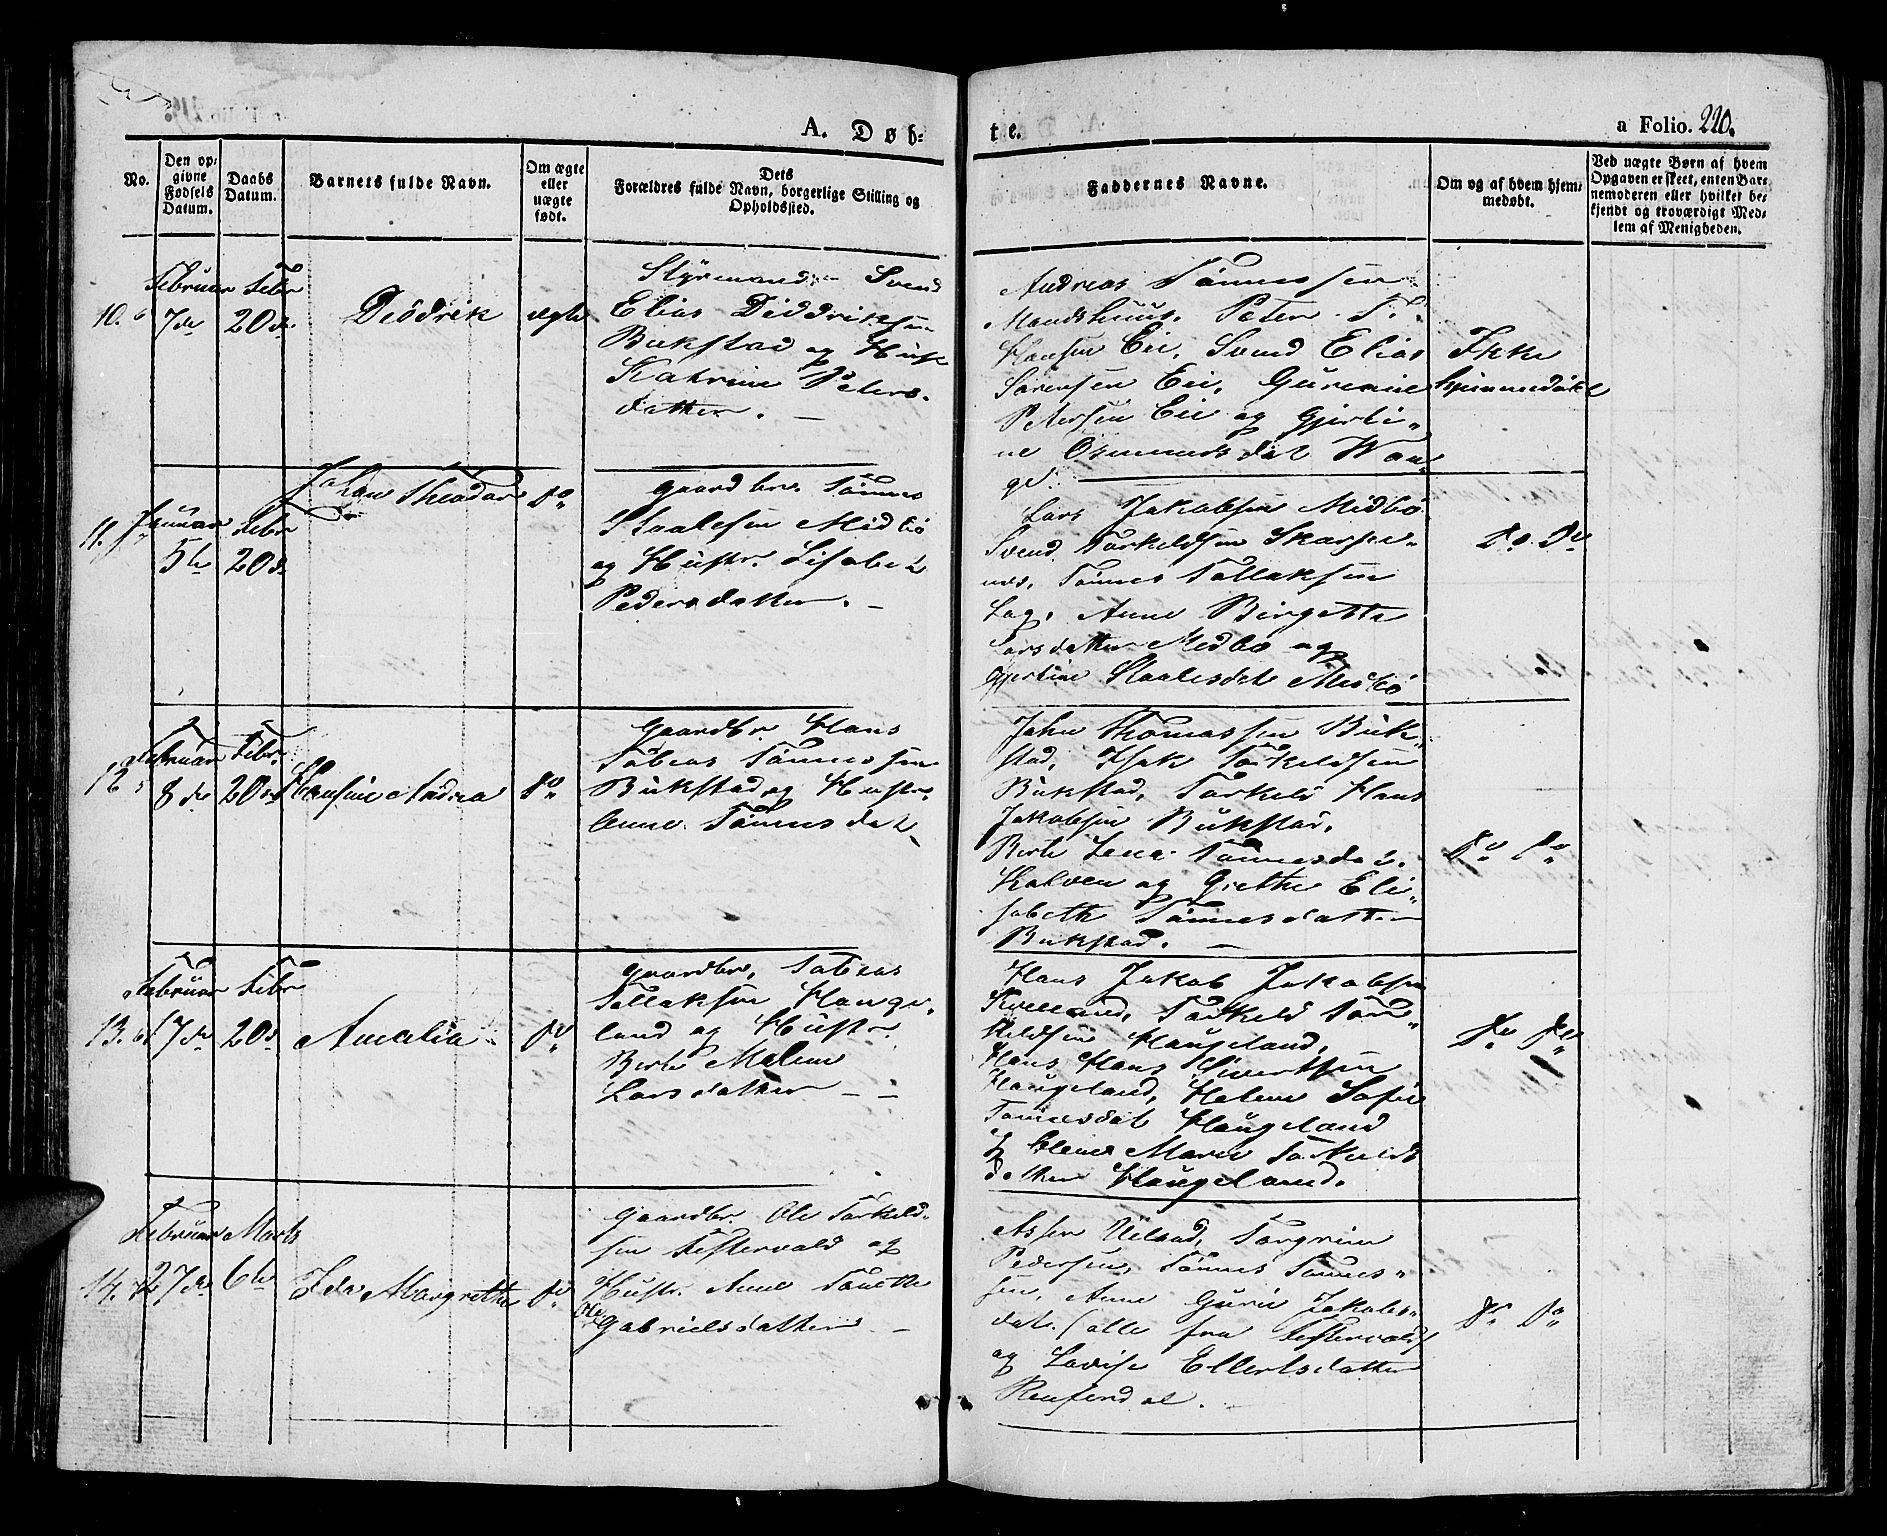 A. Døb-
te.
a Folio. 220.
No.
Den op-
givne
Fødsels
Datum.
Daabs
Datum.
Barnets fulde Navn.
Om ægte
eller
uægte
født.
Dets
Forældres fulde Navn, borgerlige Stilling og
Opholdssted.
Faddernes Navne.
Om og af hvem hjem-
medøbt.
Ved uægte Børn af hvem
Opgaven er skeet, enten Bar-
nemoderen eller hvilket be-
kjendt og troværdigt Med-
lem af Menigheden.
10.
Februar
7de
Febr
20de
Diðdrik
ægte
Styrmand Svend
Elias Diddriksen
Bukstad og Hust
Kathrine Peters-
datter. –
Andreas Tønnessen
Peter T.
Hansen Eie, Svend Elias
Sørensen Eie, Gurenie
Petersen Eie og Gjerti-
ne Osmundsdat Wan-
ge.
Ikke
hjemmedøbt
11.
Januar
5te
Febr
20de
Johan Theodor
do
Gaardbr. Tønnes
Staalesen Midbø
og Hustr. Lisabet
Pedersdatter. –
Lars Jakobsen Midbø
Svend Torkeldsen
Tønnes Tollaksen
Log, Anne Birgette
Larsdatter Midbø og
Gjertine Staalesdat Midbø
do. do
12
Februar
8de
Febr.
20de
Hansine Andrea
do
Gaardbr Hans
Tobias Tønnessen
Bukstad og Hustr.
Anne Tønnesdat
John Thomassen Buk-
stad, Isak Torkeldsen
Bukstad, Torkeld Hans
Jakobsen Bukstad,
Berte Lene Tønnesdat.
Kalven og Grethe Eli-
sabeth Tønnesdatter
Bukstad. –
do do
13.
Februar
17de
Febr
20de
Amalia
do
Gaardbr. Tobias
Tollaksen Hauge-
land og Hustr.
Berte Malene
Larsdatter – –
Hans Jakob Jakobsen
Torkeld Tor-
keldsen Haugeland,
Hans Hans Sivertsen
Haugeland, Helene Sofie
Tønnesdat Haugeland
og Elene Marie Torkelds
datter Haugeland.
do do
14.
Februar
27de
Marts
6te
Ida Margrethe
do
Gaardbr. Ole Torkeld-
sen Festervold og
Hustr. Anne Tonette
Ole
Gabrielsdatter –
Asser Ueland, Torgrim
Pedersen, Tønnes Tønnes-
sen, Anne Gurie Jakobs-
dat. (alle fra Festervold)
og Lovise Ellertsdatter
do do